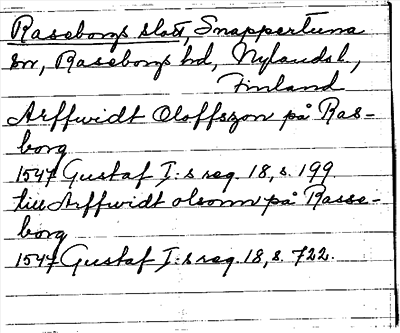 Raseborgs slott, Snappertuna
sn, Raseborgs hd, Nylands l.,
Finland
Arffwidt Oloffszon på Ras-
borg
1547 Gustaf I:s reg. 18, s. 199
till Arffwidt olsonn på Rasse-
borg
1547 Gustaf I:s reg. 18, s. 722.